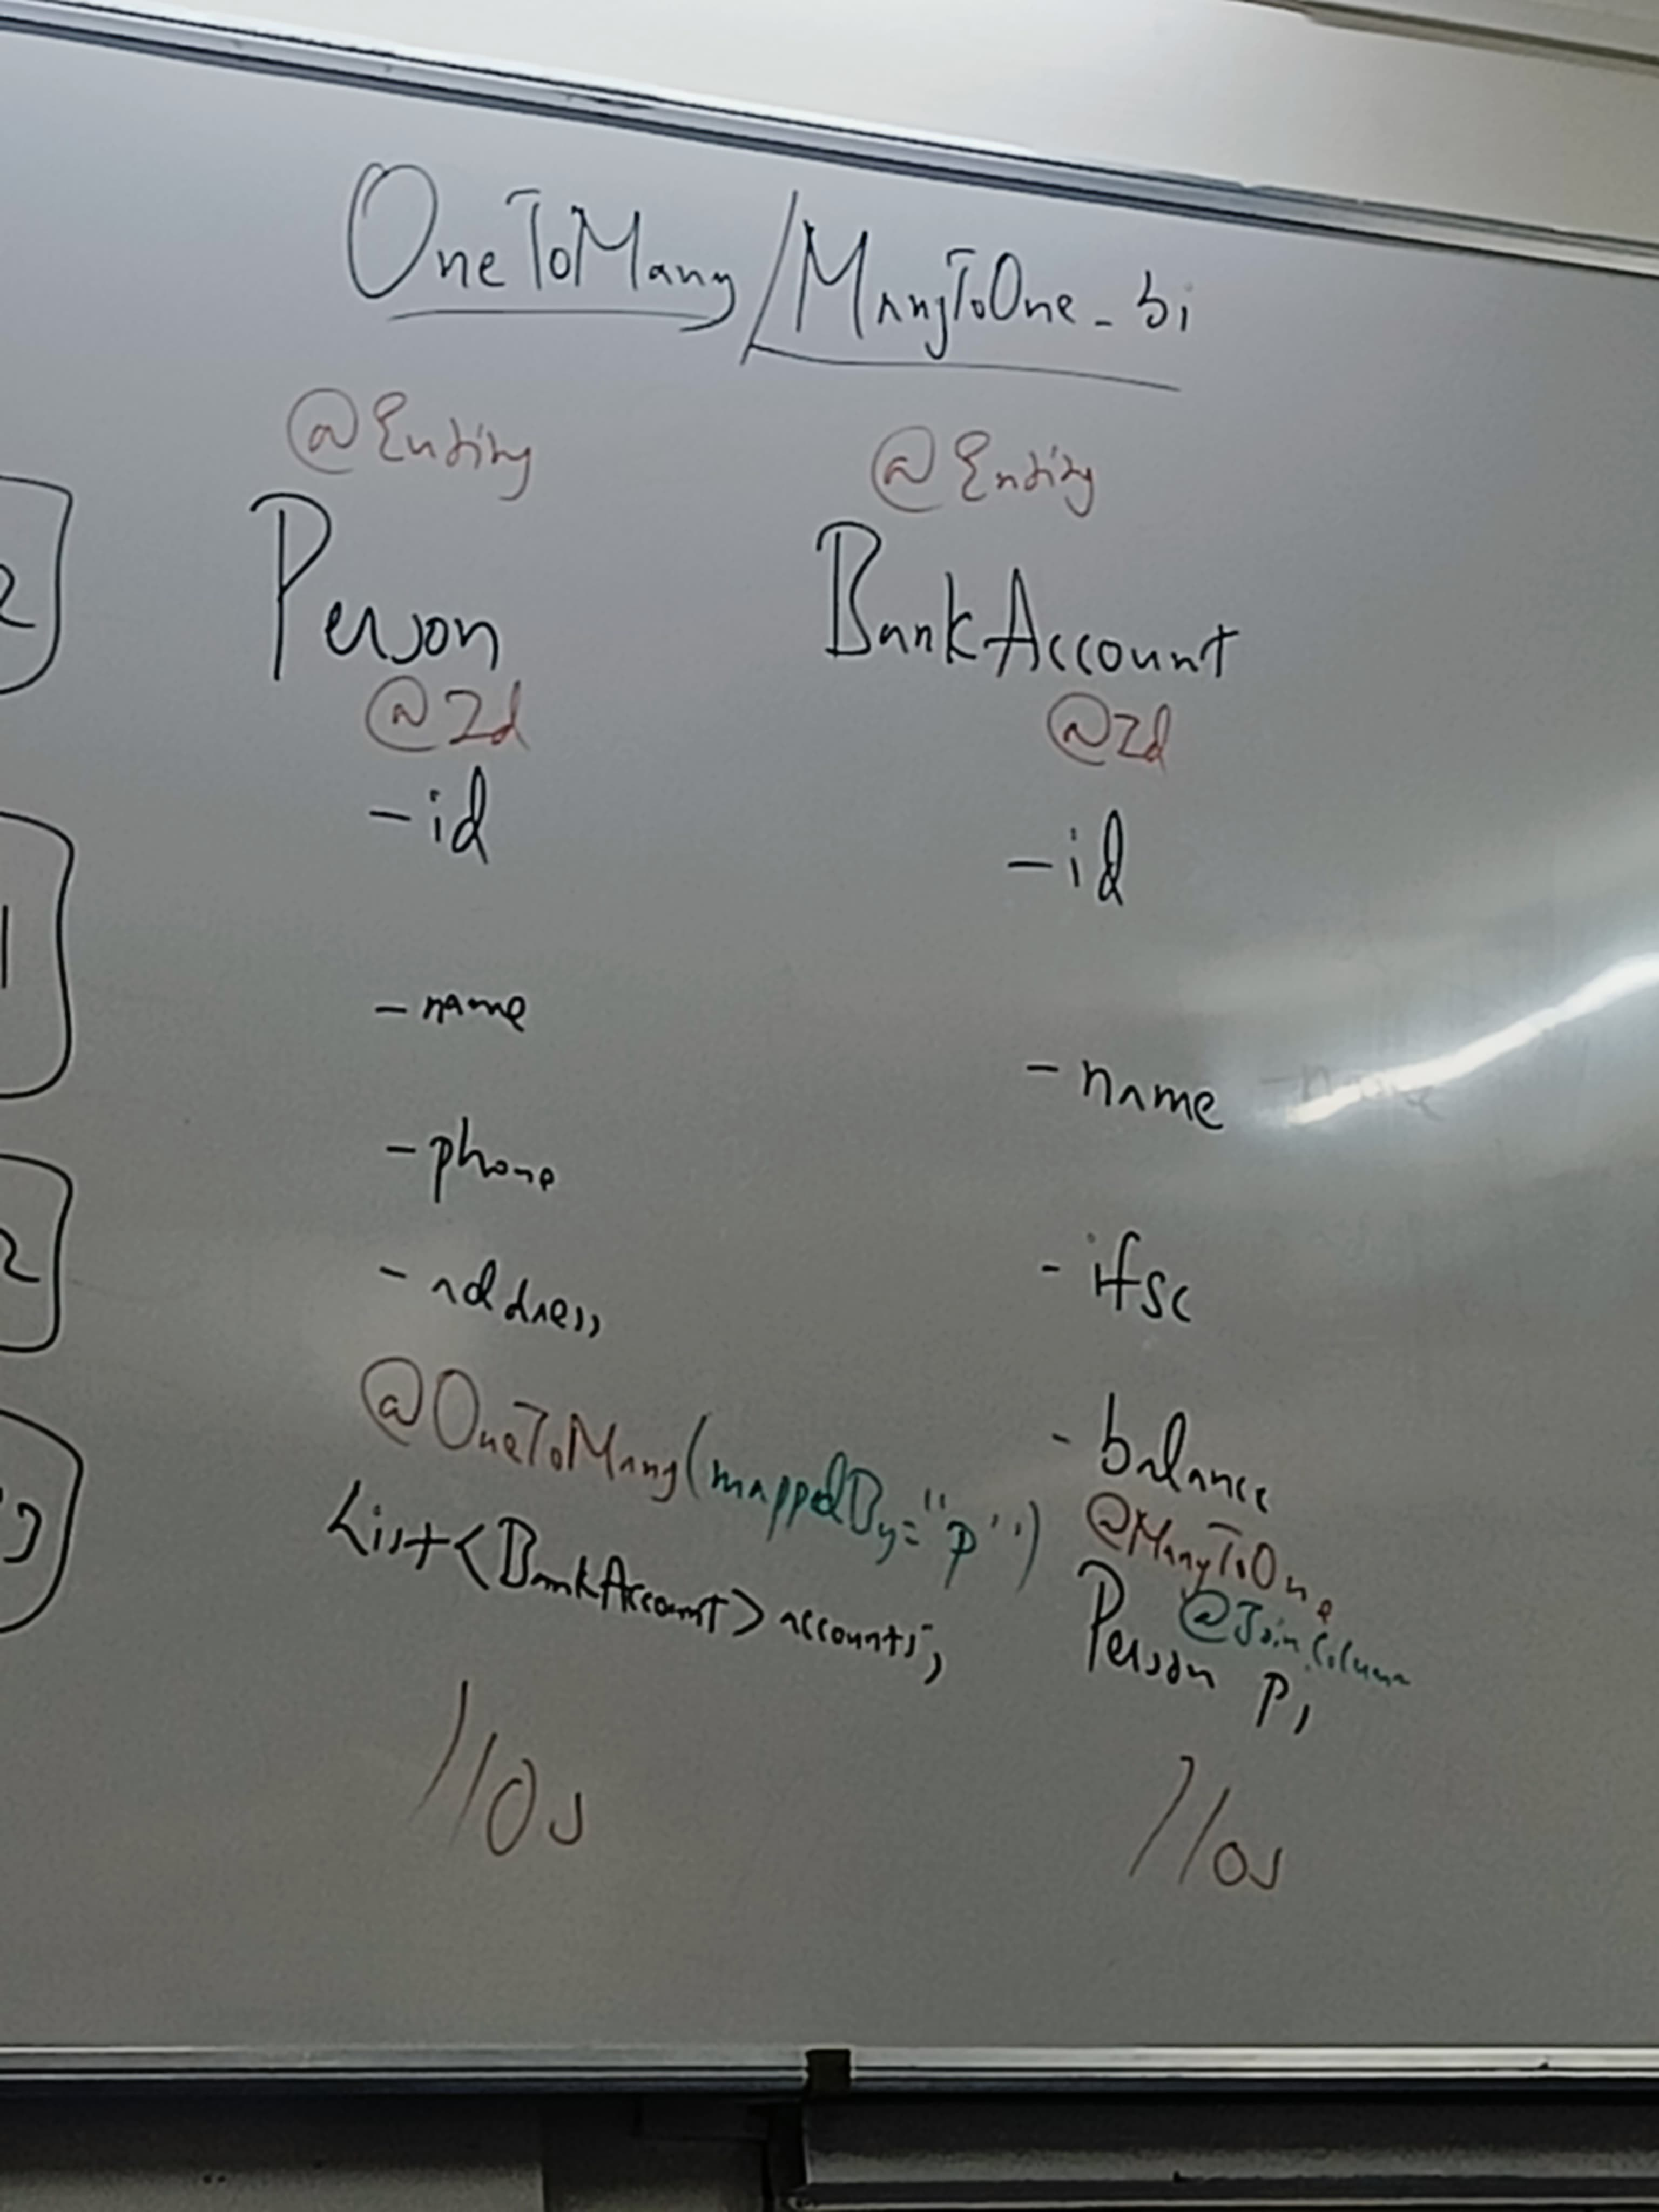 OneToMany/ManyToOne_bi
@Entity
Person
@Id
-id
-name
-phone
-address
@OneToMany(mappedBy="p")
List<BankAccount> accounts;
//Os
@Entity
BankAccount
@Id
-id
-name -name
-ifsc
-balance
@ManyToOne
@JoinColumn
Person p;
//os
2
1
2